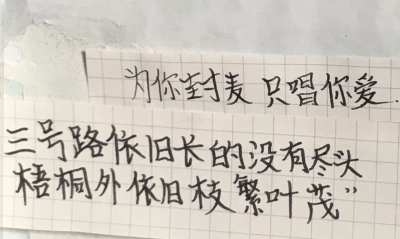 为你封麦 只唱你爱.
三号路依旧长的没有尽头
梧桐外依旧枝繁叶茂”